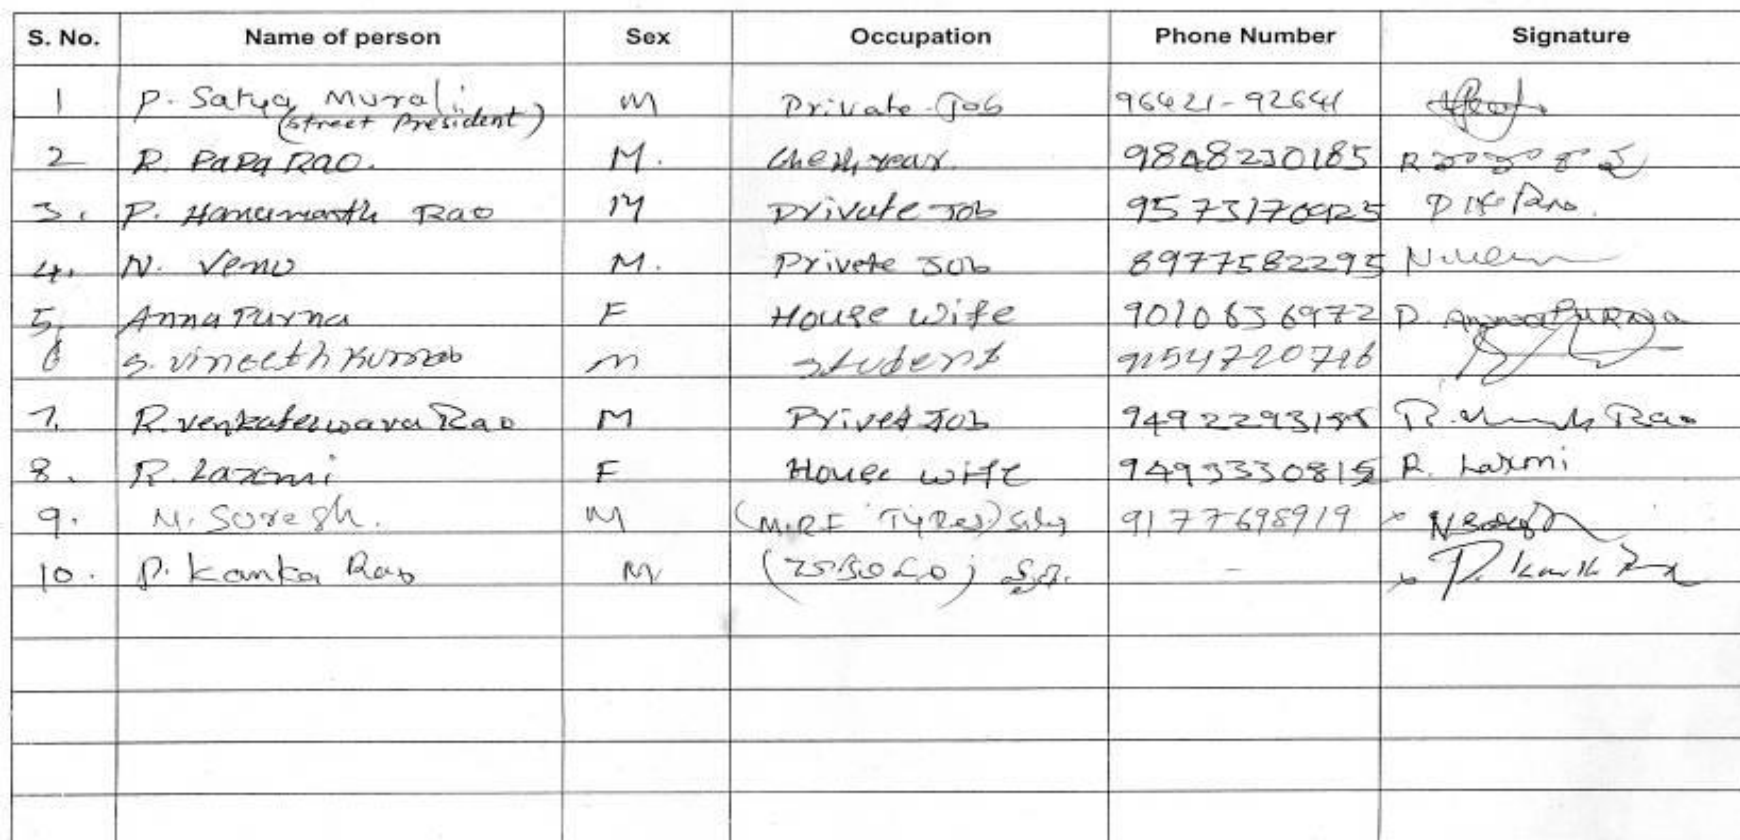 S. No. Name of person Sex Occupation Phone Number Signature
1 P. Satya Murali M Private Job 96421-92641
(Street President)
2 R. PaPa RAO. M. 9848230185 R
3. P. Hanumanth Rao M Private Job 9573170925
4. N. Venu M. Privete Job 8977582295
5. Anna Purna F House Wife 9010636972 D. Annapurna
6 S. Vineeth Kumar m student 9154720716
7. R. Venkateswara Rao M Prived Job R. Rao
8. R. Laxmi F House Wife 9493330815 R. Laxmi
9. N. Suresh. M (M.R.F TYRes) 9177698919
10. P. Kanka Rao M -